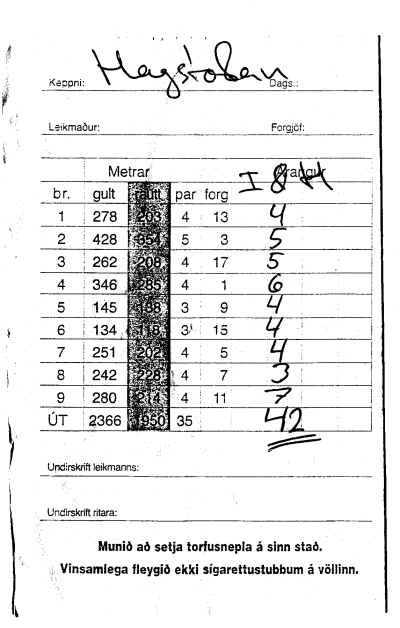 Keppni: Hagstofan Dags.:
Leikmaður: Forgjöf:
Metrar Árangur
I & H
br. gult rautt par forg
1 278 203 4 13 4
2 428 354 5 3 5
3 262 208 4 17 5
4 346 285 4 1 6
5 145 138 3 9 4
6 134 118 3 15 4
7 251 202 4 5 4
8 242 226 4 7 3
9 280 214 4 11 7
ÚT 2366 1950 35 42
Undirskrift leikmanns:
Undirskrift ritara:
Munið að setja torfusnepla á sinn stað.
Vinsamlega fleygið ekki sígarettustubbum á völlinn.